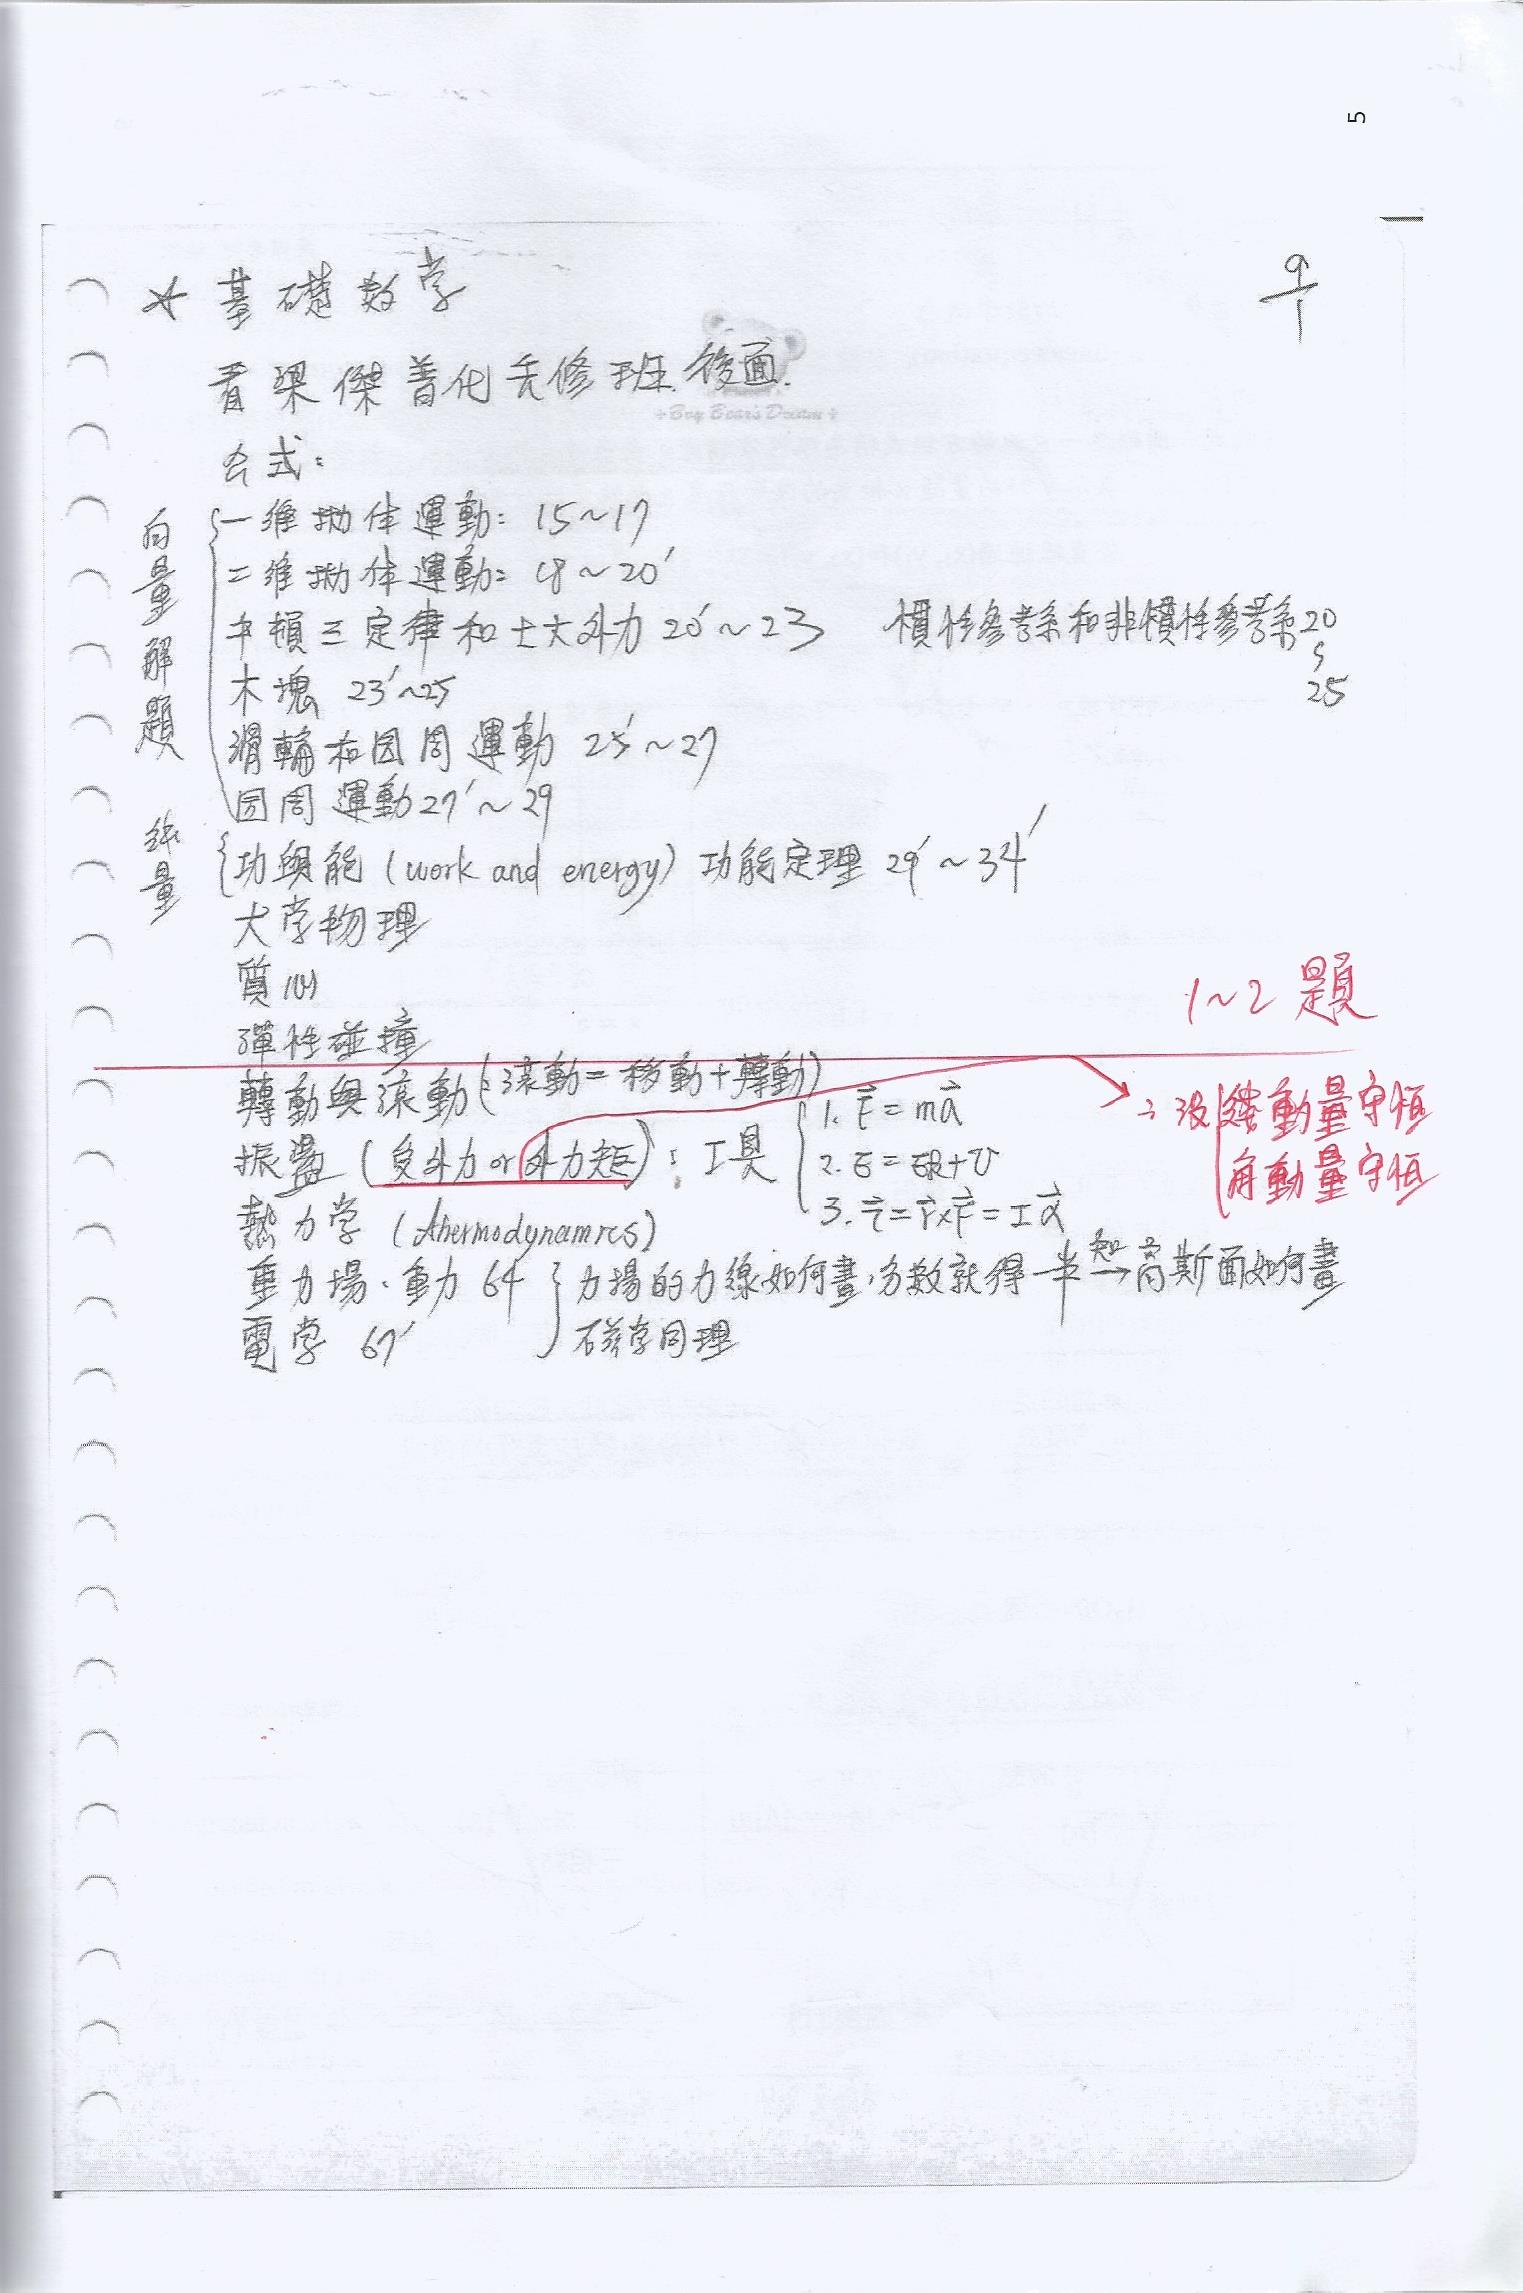 5
9/1
☆ 基礎数学
看梁傑普化先修班後面.
+Boy Bear's Dream+
公式:
向量解題
一維拋体運動: 15~17
二維拋体運動: 18~20'
牛頓三定律和七大外力 20'~23 慣性參考系和非慣性參考系 20~25
木塊 23'~25
滑輪和圆周運動 25'~27
圆周運動 27'~29
純量
功與能 (work and energy) 功能定理 29'~34'
大学物理
質心
彈性碰撞
1~2 題
轉動與滾動 (:滾動=移動+轉動)
振盪 (受外力 or 外力矩): 工具
1. F⃗=ma⃗
2. E=ER+U
3. τ⃗=r⃗×F⃗=Iα⃗
∴没 動量守恒
角動量守恒
熱力学 (thermodynamics)
重力場.重力 64
電学 67'
力場的力線如何畫,分數就得一半 知→高斯面如何畫
磁学同理